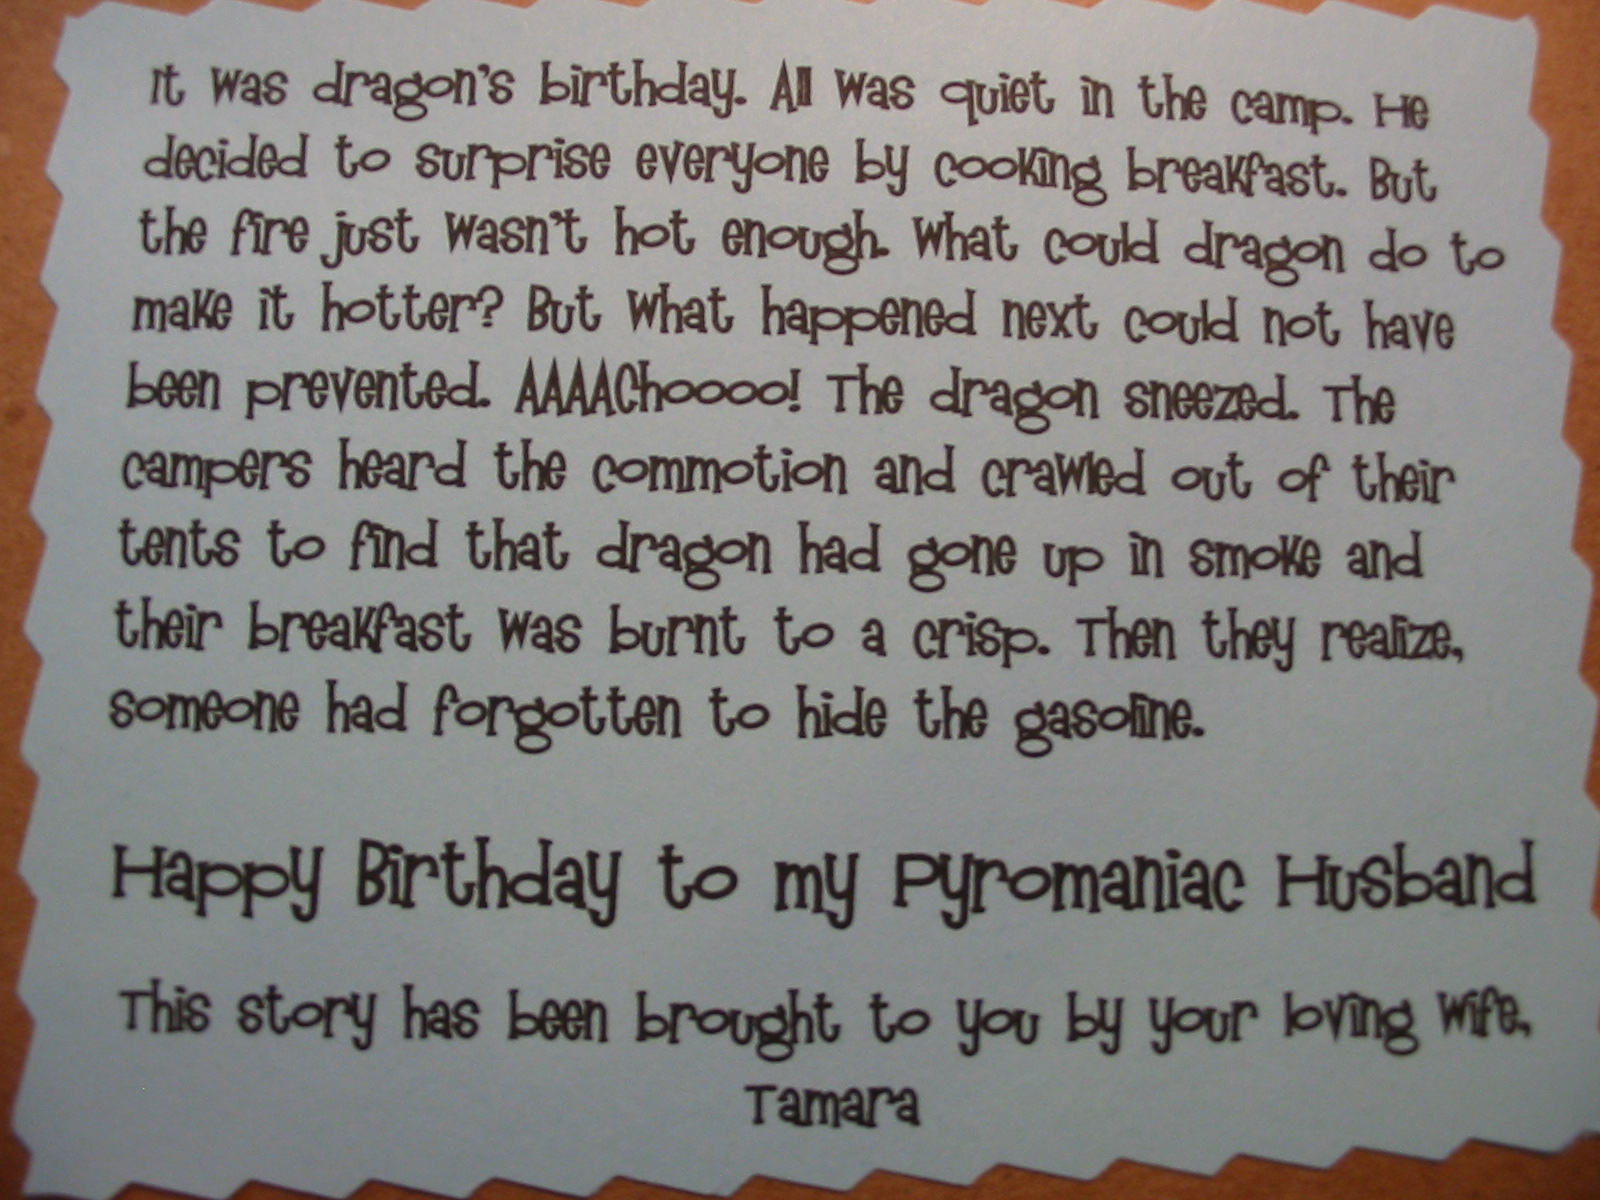 It was dragon's birthday. All was quiet in the camp. He
decided to surprise everyone by cooking breakfast. But
the fire just wasn't hot enough. What could dragon do to
make it hotter? But what happened next could not have
been prevented. AAAAChoooo! The dragon sneezed. The
campers heard the commotion and crawled out of their
tents to find that dragon had gone up in smoke and
their breakfast was burnt to a crisp. Then they realize,
someone had forgotten to hide the gasoline.
Happy Birthday to my Pyromaniac Husband
This story has been brought to you by your loving wife,
Tamara